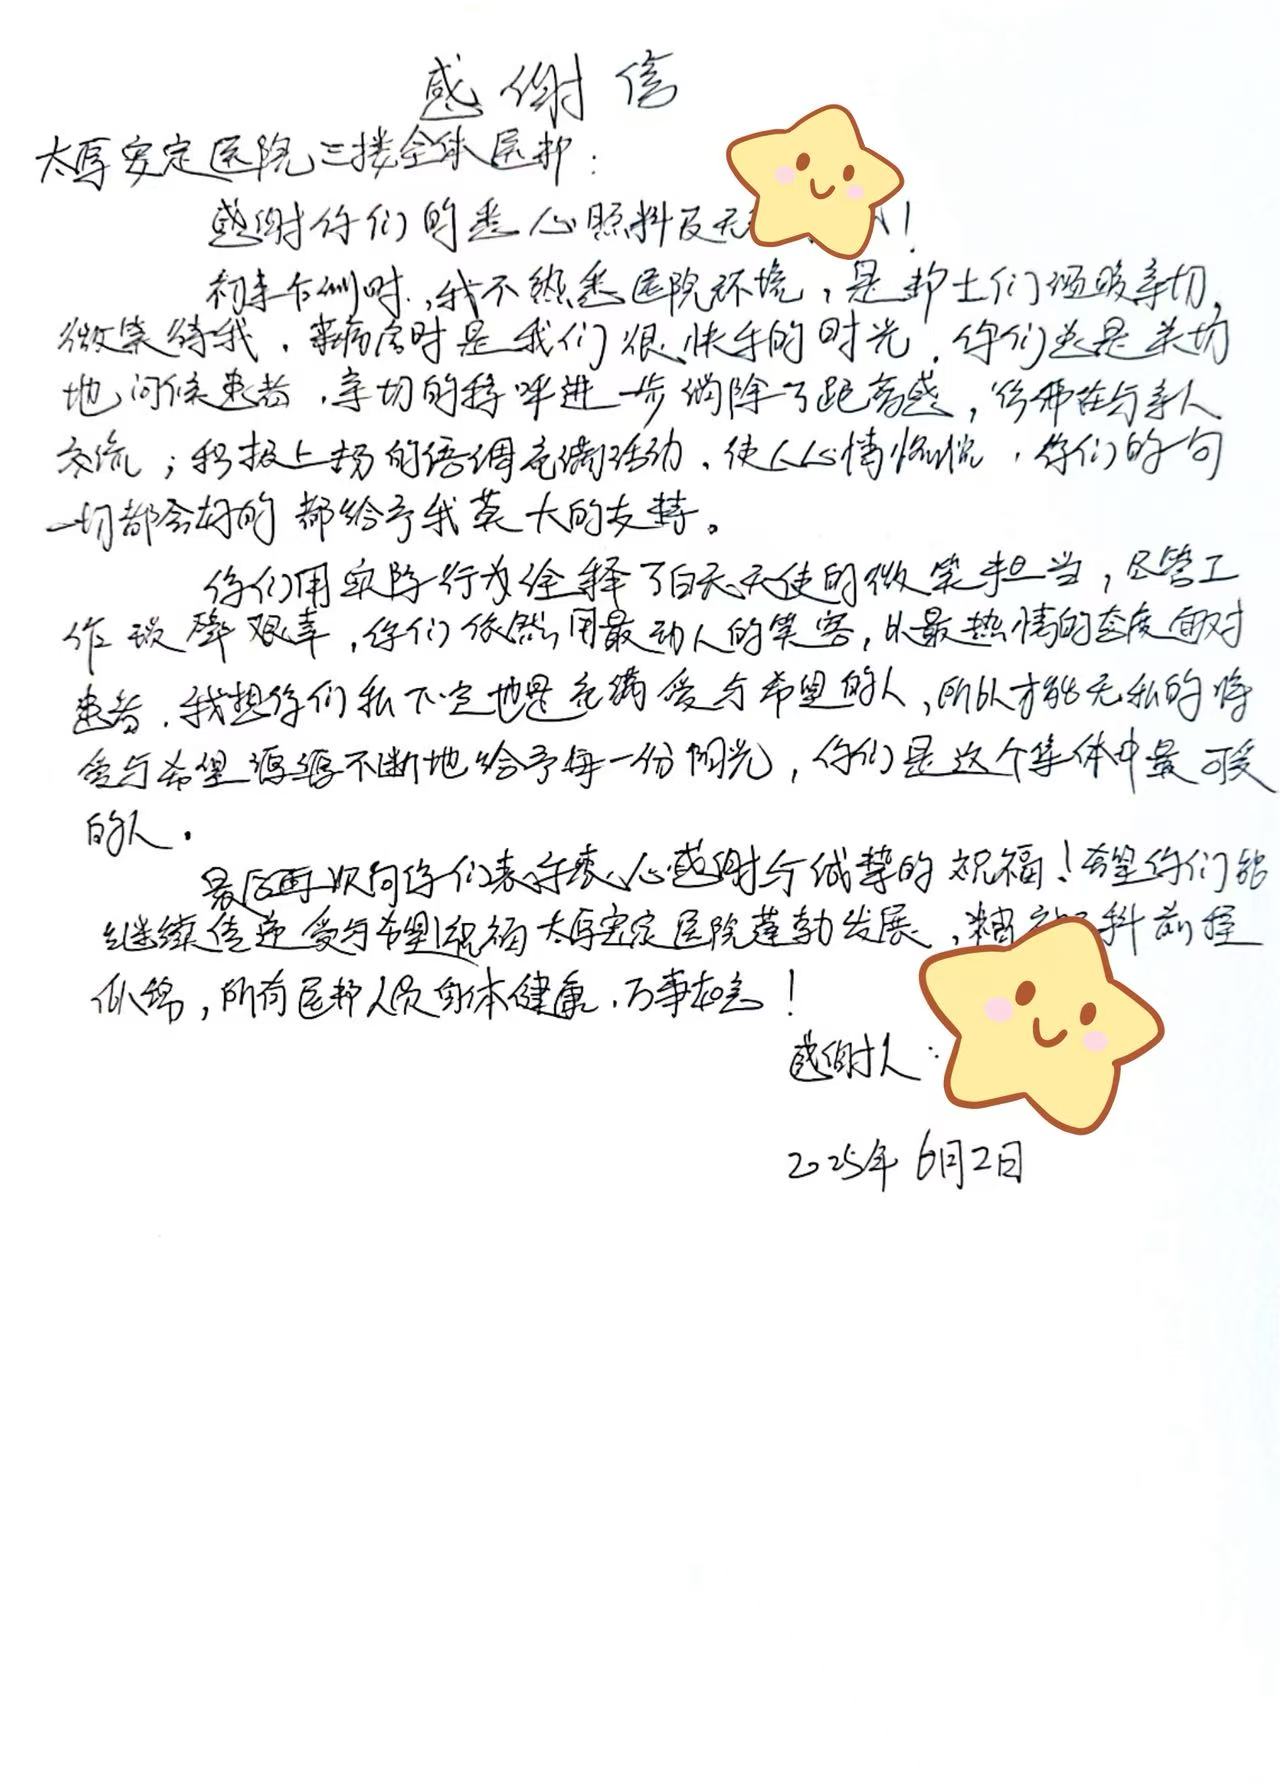 感谢信
太原安定医院三楼全体医护：
感谢你们的悉心照料及无！
初来乍到时，我不熟悉医院环境，是护士们温暖亲切，
微笑待我，来病房时是我们很快乐的时光，你们总是关切
地问候患者，亲切的称呼进一步消除了距离感，仿佛在与亲人
交流；积极上扬的语调充满活动，使人心情愉悦，你们的一句
一切都会好的都给予我莫大的支持。
你们用实际行为诠释了白天天使的微笑担当，尽管工
作琐碎艰辛，你们依然用最动人的笑容，以最热情的态度面对
患者，我想你们私下定也是充满爱与希望的人，所以才能无私的将
爱与希望源源不断地给予每一份阳光，你们是这个集体中最可爱
的人。
最后再次向你们表示衷心感谢与诚挚的祝福！希望你们能
继续传递爱与希望祝福太原安定医院蓬勃发展，精科前程
似锦，所有医护人员身体健康，万事如意！
感谢人：
2025年6月2日